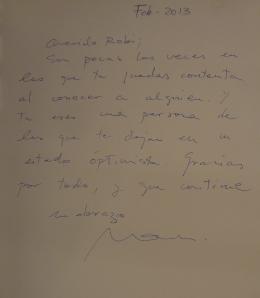 Feb - 2013
Querido Robi;
Son pocas las veces en
las que te quedas contenta
al conocer a alguien. Y
tu eres una persona de
las que te dejan en un
estado optimista. Gracias
por todo, y que continue
un abrazo